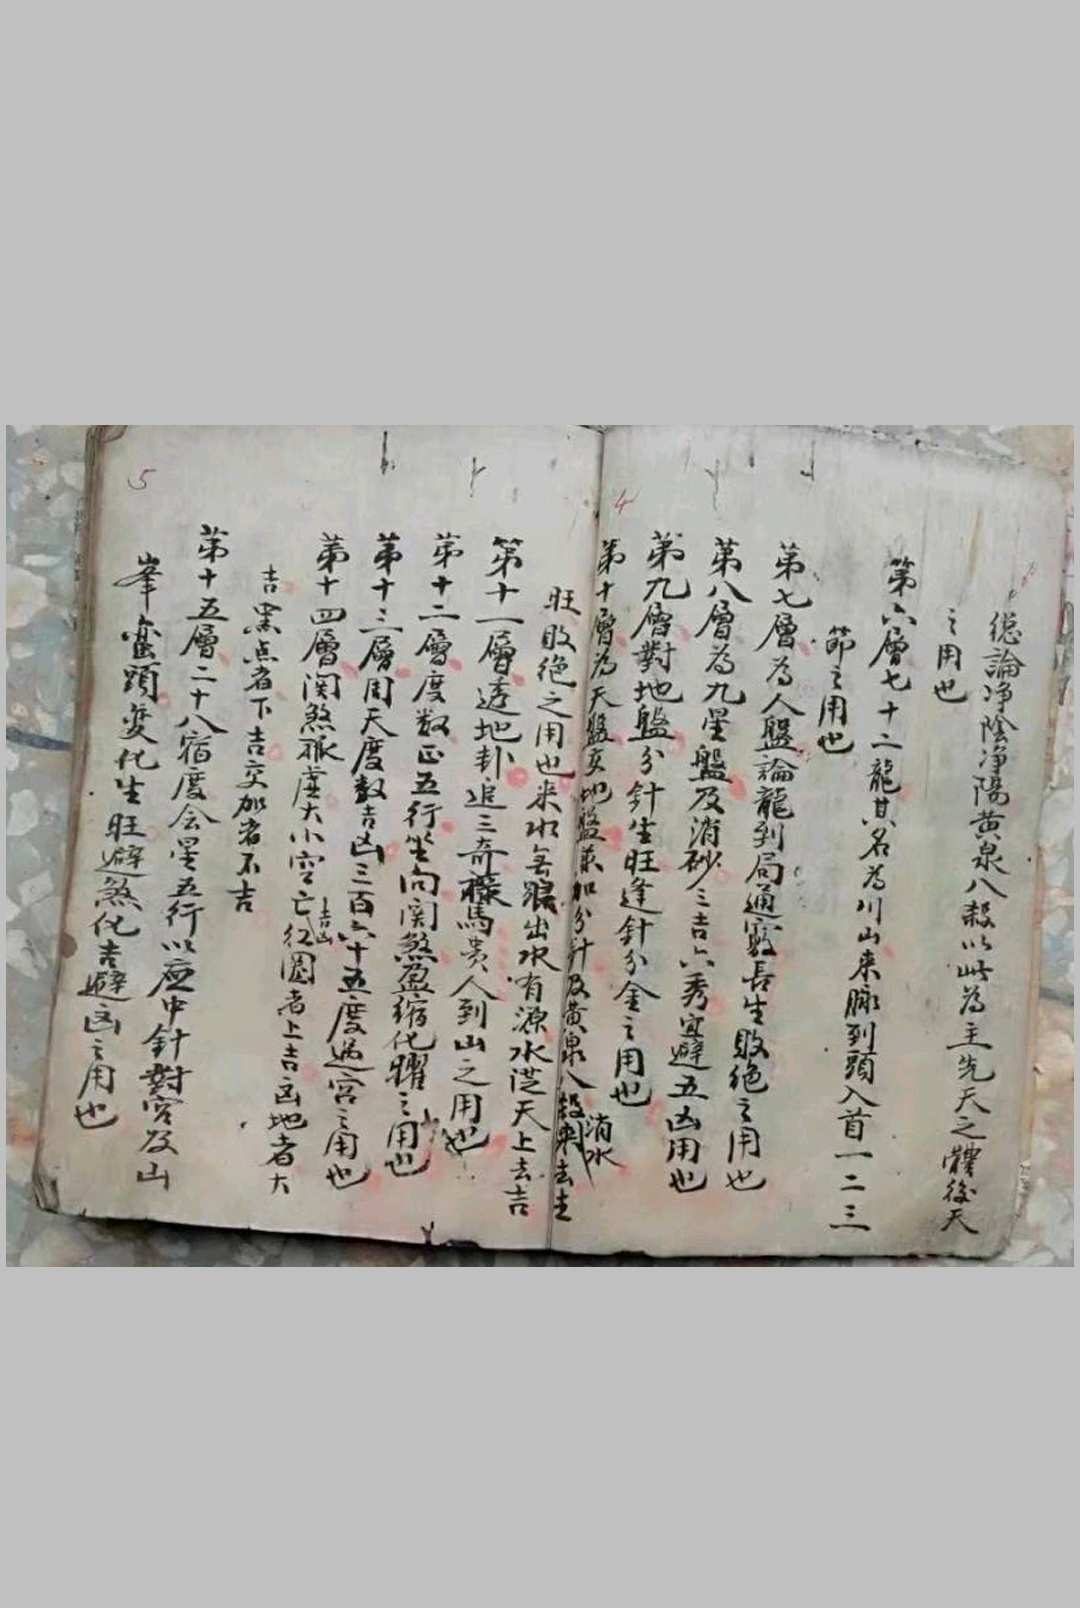 4
總論净陰净陽黄泉八殺以此為主先天之體後天
之用也
第六層七十二龍其名為川山来脉到頭入首一二三
節之用也
第七層為人盤論龍到局通竅長生敗絶之用也
第八層為九星盤及消砂三吉六秀宜避五凶用也
第九層對地盤分針生旺逢針分金之用也
第十層為天盤地盤兼加分針及黄泉八殺去
消水
5
旺敗絶之用也来水無出水有源水茫天上去吉
第十一層透地卦追三奇祿馬贵人到山之用也
第十二層度数正五行坐向関煞盈縮化曜之用也
第十三層周天度数吉凶三百六十五度过宫之用也
第十四層関煞孤虚大小空亡红圆者上吉凶地者大
吉凶
吉黑点者下吉交加者不吉
第十五層二十八宿度会星五行以应中針對宫及山
峯巒頭变化生旺避煞化吉避凶之用也